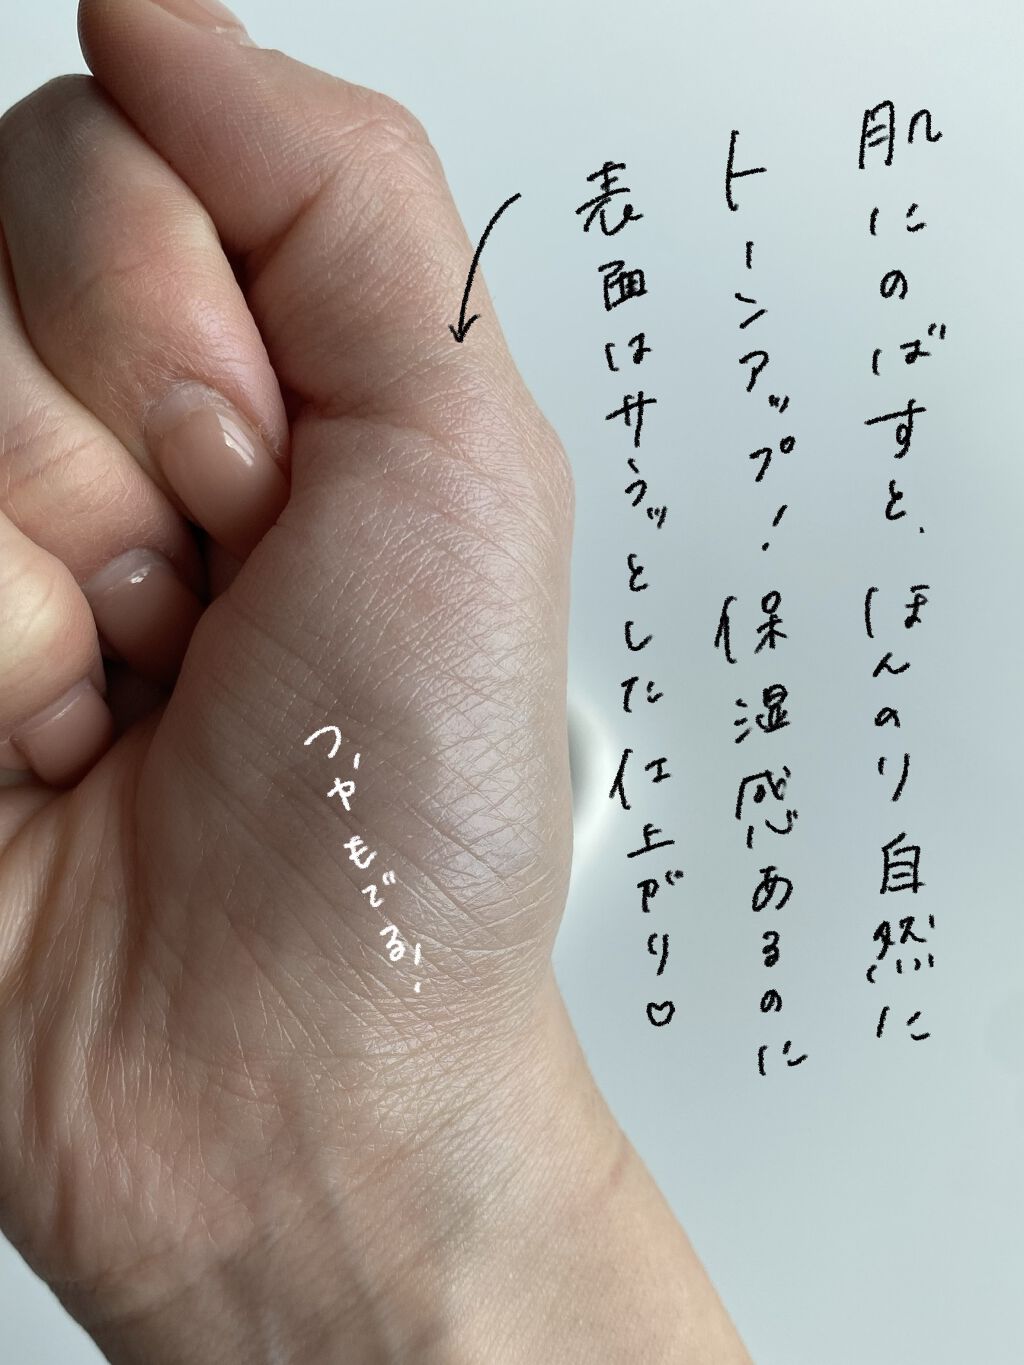 肌にのばすと、ほんのり自然に
トーンアップ!保湿感あるのに
表面はサラッとした仕上がり♡
つやもでる!